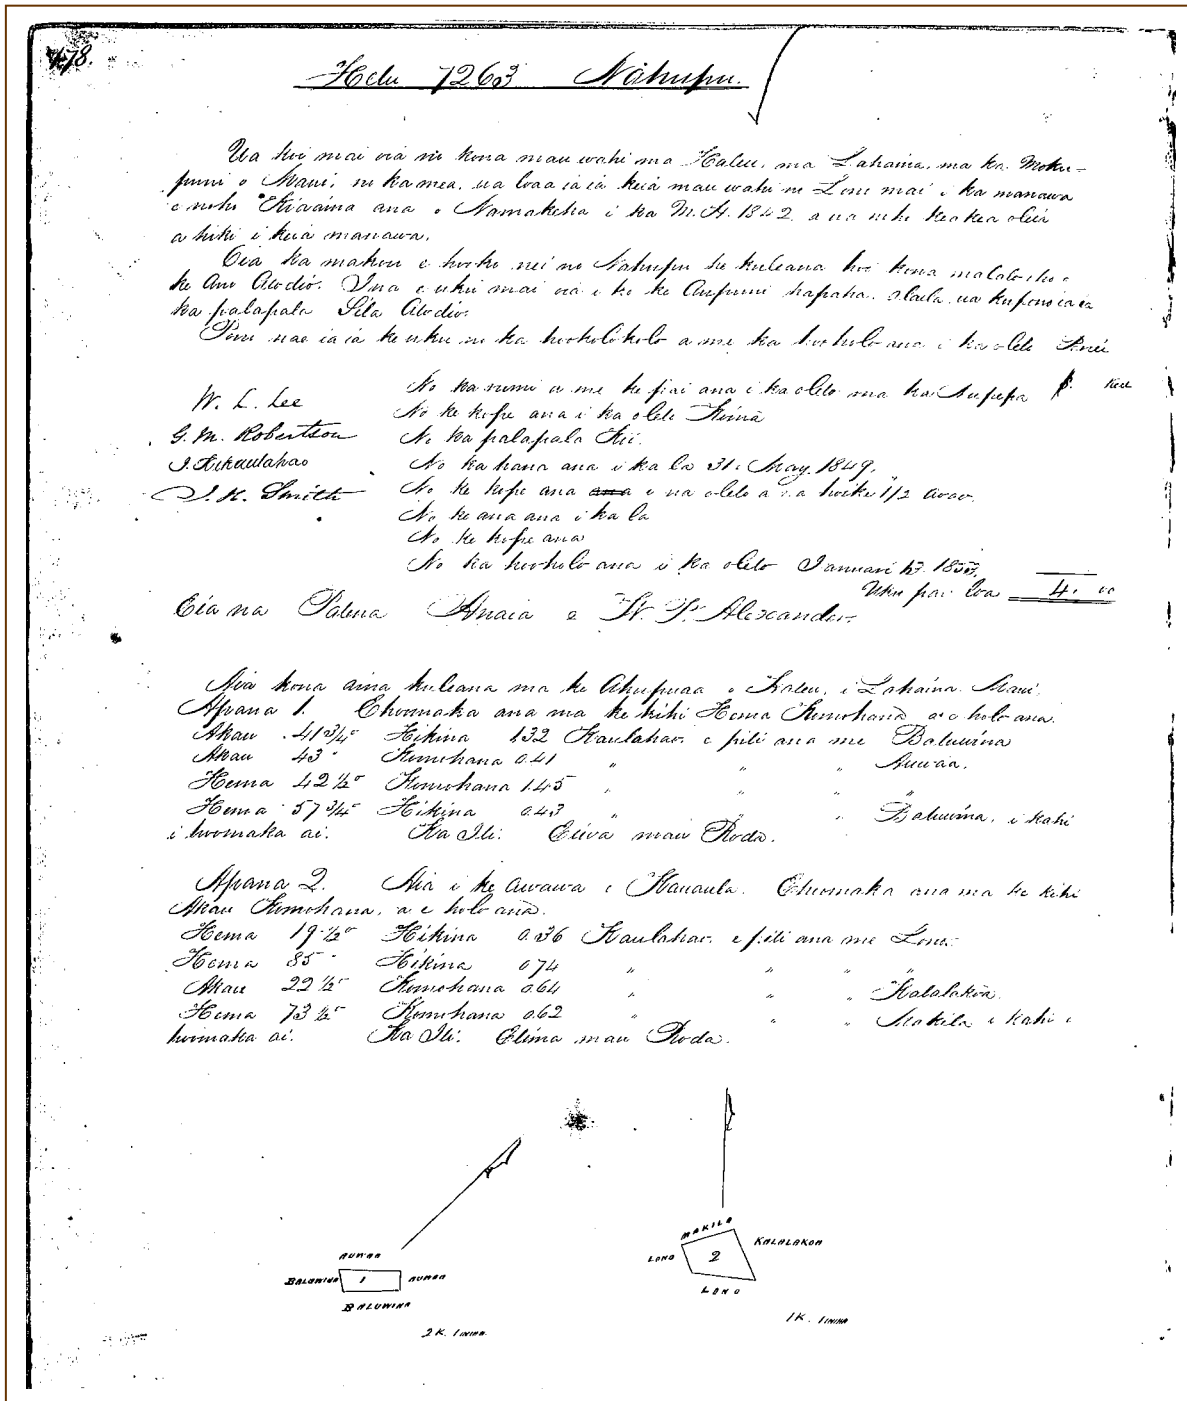 478.
Helu 7263 Nahupu.
Ua koi mai oia no kona mau wahi ma Haleu, ma Lahaina, ma ka Moku-
puni o Maui, no ka mea, ua loaa ia ia keia mau wahi no Lono mai i ka manawa
e noho Kiaaina ana o Namakeha i ka M.H. 1842 a ua noho keakea oleia
a hiki i keia manawa.
Oia ka makou e hooko nei no Nahupu he kuleana hoi kona malalo iho o
ke Ano Alodio. Ina e uku mai oia i ko ke Aupuni hapaha, alaila, ua kupono ia ia
ka palapala Sila Alodio.
Pono nae ia ia ke uku no ka hookolokolo a me ka hooholo ana i ka olelo Penei
W. L. Lee
G. M. Robertson
J. Kekaulahao
J. K. Smith
No ka rumi a me ke pai ana i ka olelo ma ka Nupepa $. Ken
No ke kope ana i ka olelo Kumu
No ka palapala Kii.
No ka hana ana i ka la 31. May. 1849.
No ke kope ana ana i na olelo a na hoike 1/2 aoao.
No ke ana ana i ka la
No ke kope ana
No ka hooholo ana i ka olelo Januari
Uku pau loa 4. 00
Eia na Palena Anaia e W. P. Alexander.
Aia kona aina kuleana ma ke Ahupuaa o Haleu, i Lahaina Maui.
Apana 1. E hoomaka ana ma ke kihi Hema Komohana a e holo ana.
Akau 41 3/4° Hikina 1.32 Kaulahao e pili ana me Baluwina
Akau 43° Komohana 0.41 " " " Auwaa.
Hema 42 1/2° Komohana 1.45 " " " "
Hema 57 3/4° Hikina 0.43 " " " Baluwina, i kahi
i hoomaka ai. Ka Ili. Eiwa mau Roda.
Apana 2. Aia i ke Awawa o Kauaula. E hoomaka ana ma ke kihi
Akau Komohana, a e holo ana.
Hema 19 1/2° Hikina 0.36 Kaulahao e pili ana me Lono.
Hema 85° Hikina 0.74 " " " "
Akau 22 1/2° Komohana 0.64 " " " Kalalakoa
Hema 73 1/2° Komohana 0.62 " " " Makila i kahi i
hoomaka ai. Ka Ili. Elima mau Roda.
AUWAA
BALUWINA 1 AUWAA
BALUWINA
2 K. 1 INIHA
MAKILA
LONO 2 KALALAKOA
LONO
1 K. 1 INIHA